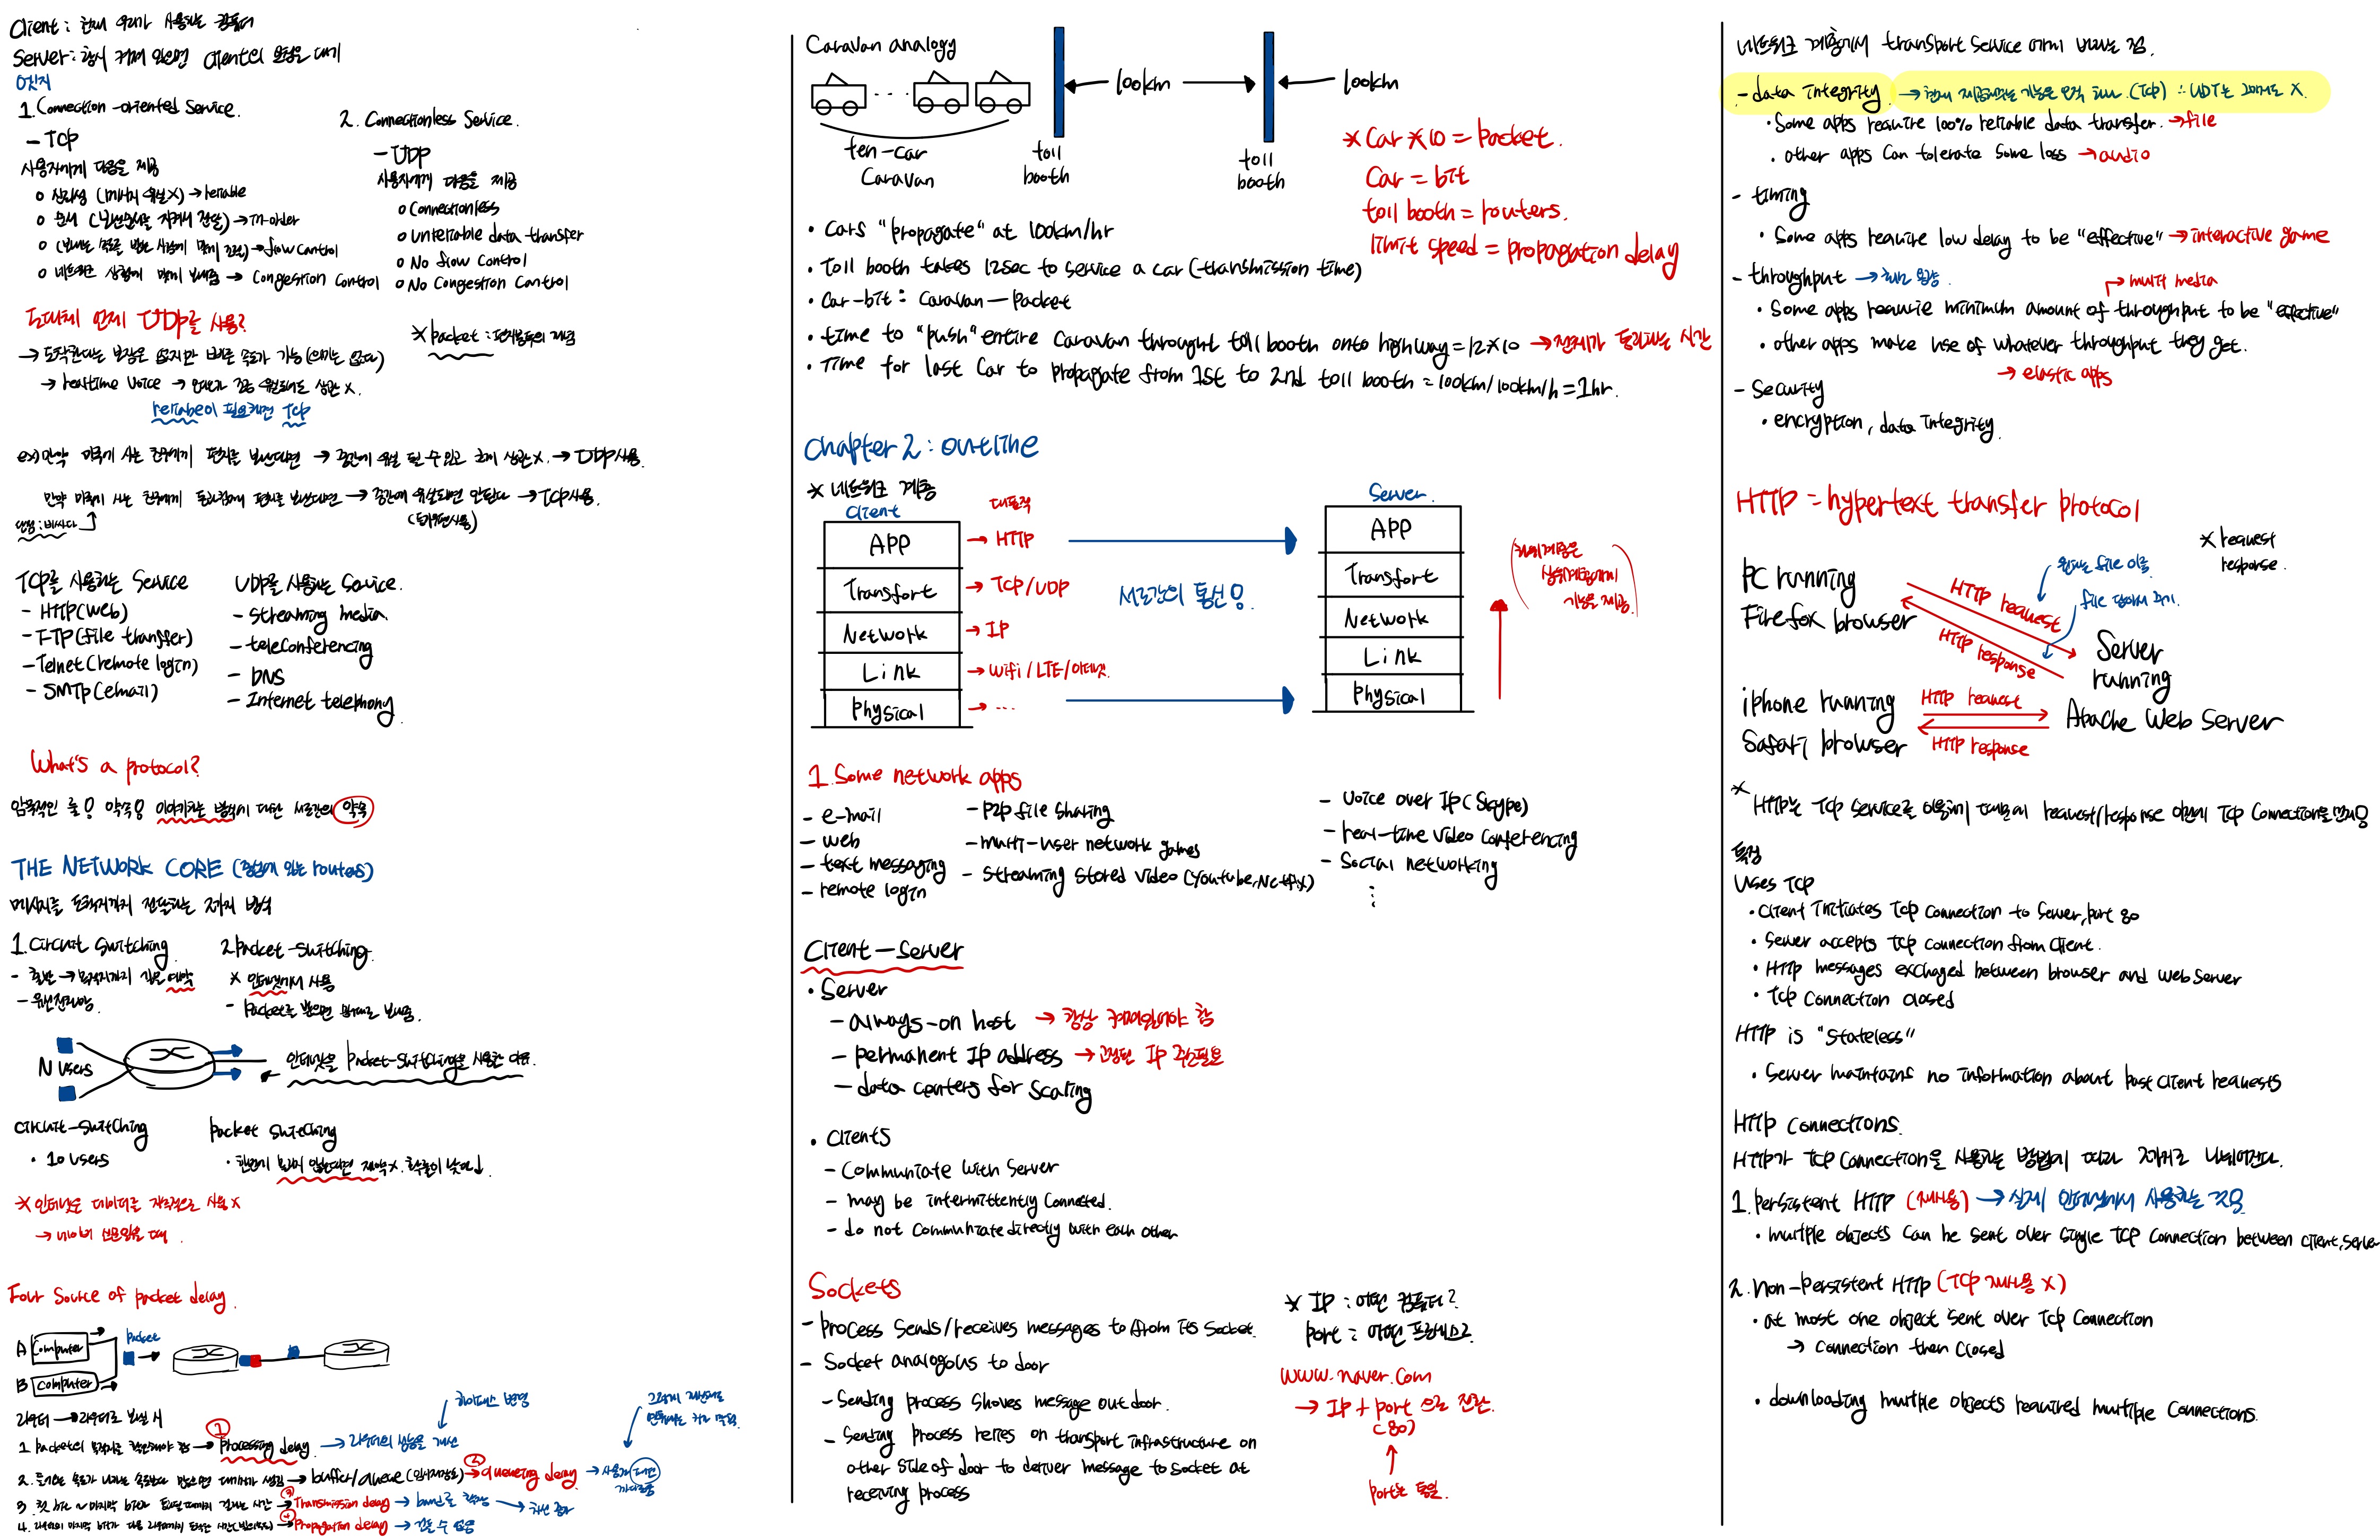 Client : 현재 우리가 사용하는 컴퓨터
Server : 항시 켜져 있으면 Client의 요청을 대기
1. Connection-oriented Service.
- TCP
사용자에게 다음을 제공
o 신뢰성 (메시지 유실X) → reliable
o 순서 (보낸순서를 지켜서 전달) → in-order
o (보내는 속도를 받는 사람에 맞게 전송) → flow control
o 네트워크 상황에 맞게 보내줌 → Congestion control
2. Connectionless Service.
- UDP
사용자에게 다음을 제공
o Connectionless
o unreliable data transfer
o No flow control
o No Congestion Control
도대체 언제 UDP를 사용?
→ 도착한다는 보장은 없지만 빠른 속도가 가능
→ realtime voice → 언어가 조금 유실돼도 상관 X.
reliable이 필요하면 TCP
* packet :
ex) 만약 미국에 사는 친구에게 편지를 보낸다면 → 중간에 유실 될 수 있고 크게 상관X. → UDP사용.
만약 미국에 사는 친구에게 편지를 보낸다면 → 중간에 유실되면 안된다 → TCP사용.
단점 : 비싸다
TCP를 사용하는 Service
- HTTP(web)
- FTP(file transfer)
- Telnet(remote login)
- SMTP(email)
UDP를 사용하는 Service.
- streaming media
- teleconferencing
- DNS
- Internet telephony
What's a protocol?
암묵적인 룰! 약속! 이야기하는 방식에 대한 서로간의 약속
THE NETWORK CORE (중심에 있는 routers)
메시지를 목적지까지 전달하는 2가지 방식
1. Circuit Switching
- 출발 → 목적지까지 길을 예약
- 유선전화망.
2. Packet-Switching.
* 인터넷에서 사용
- Packet을 받으면 보내줌.
N users
인터넷은 Packet-Switching을 사용한 이유.
circuit-switching
• 10 users
packet switching
* 인터넷은 데이터를 지속적으로 사용 X
→ 네이버 신문읽을 때
Four Source of packet delay.
A Computer
B Computer
packet
라우터 → 라우터로 보낼 시
1. Packet의 목적지를 확인해야 함 → ① Processing delay → 라우터의 성능을 개선
2. 들어오는 속도가 나가는 속도보다 많으면 대기시간 생김 → buffer/queue (임시저장소) → ② queueing delay
3. 첫 bit ~ 마지막 bit가 걸리는 시간 → ③ Transmission delay →
4. 라우터의 마지막 bit가 다음 라우터까지 도착하는 시간 → ④ Propagation delay → 건들 수 없음
Caravan analogy
← 100km → ← 100km
ten-car
Caravan
toll
booth
toll
booth
* Car * 10 = Packet.
Car = bit
toll booth = routers.
limit speed = propagation delay
• Cars "propagate" at 100km/hr
• Toll booth takes 12sec to service a car (transmission time)
• Car-bit : Caravan-Packet
• time to "push" entire Caravan throught toll booth onto highway = 12*10 → 전체가 통과하는 시간
• Time for last Car to propagate from 1st to 2nd toll booth = 100km/100km/h = 1hr.
Chapter 2 : outline
* 네트워크 계층
Client
대표적
APP → HTTP
Transfort → TCP/UDP
Network → IP
Link → Wifi/LTE/이더넷.
Physical → ...
서로간의 통신!
Server
APP
Transfort
Network
Link
Physical
(하위계층은
상위계층에게
기능을 제공.)
1. Some network apps
- e-mail
- web
- text messaging
- remote login
- P2P file sharing
- multi-user network games
- streaming stored video (Youtube, Netflix)
- Voice over IP (Skype)
- real-time video conferencing
- Social networking
⋮
Client-Server
• Server
- always-on host → 항상 켜져있어야 함
- permanent IP address → 고정된 IP 주소필요
- data centers for scaling
• Clients
- Communiate with Server
- may be intermittently Connected.
- do not communiate directly with each other
Sockets
- Process sends/receives messages to from its Socket.
- Socket analogous to door
- Sending process shoves message out door.
- Sending process relies on transport infrastructure on
other side of door to deliver message to socket at
receiving process
* IP : 어떤 컴퓨터?
port : 어떤 프로세스?
www.naver.com
→ IP + port 으로 전환.
(80)
port는 통일.
네트워크 계층에서 transport service 에게 바라는 점.
- data integrity → 현재 제공해주는 기능은 오직 하나. (TCP) ∴ UDT는 그마저도 X.
• Some apps require 100% reliable data transfer. → file
• other apps can tolerate some loss → audio
- timing
• Some apps require low delay to be "effective" → interactive game
- throughput →
→ multi media
• Some apps requuie minimum amount of throughput to be "effective"
• other apps make use of whatever throughput they get.
→ elastic apps
- Security
• encryption, data integrity.
HTTP = hypertext transfer protocol
* request
response.
원하는 file 이름
file 담아서 주기.
PC running
Firefox browser
HTTP request
HTTP response
Server
running
Apache Web Server
iphone running
Safari browser
HTTP request
HTTP response
* HTTP는 TCP Service를 이용하기 때문에 request/response 이전에 TCP Connection을 먼저!
특징
Uses TCP
• Client initiates TCP connection to server, port 80
• Server accepts TCP connection from client.
• HTTP messages exchaged between browser and web server
• TCP connection closed
HTTP is "Stateless"
• Server maintains no information about past client requests
HTTP Connections.
HTTP가 TCP Connection을 사용하는 방법에 따라 2가지로 나뉘어진다.
1. Persistent HTTP (재사용) → 실제 인터넷에서 사용하는 것!
• multiple objects can be sent over single TCP connection between client, server
2. Non-persistent HTTP (TCP 재사용 X)
• at most one object sent over TCP Connection
→ Connection then closed
• downloading multiple objects required multiple Connections.